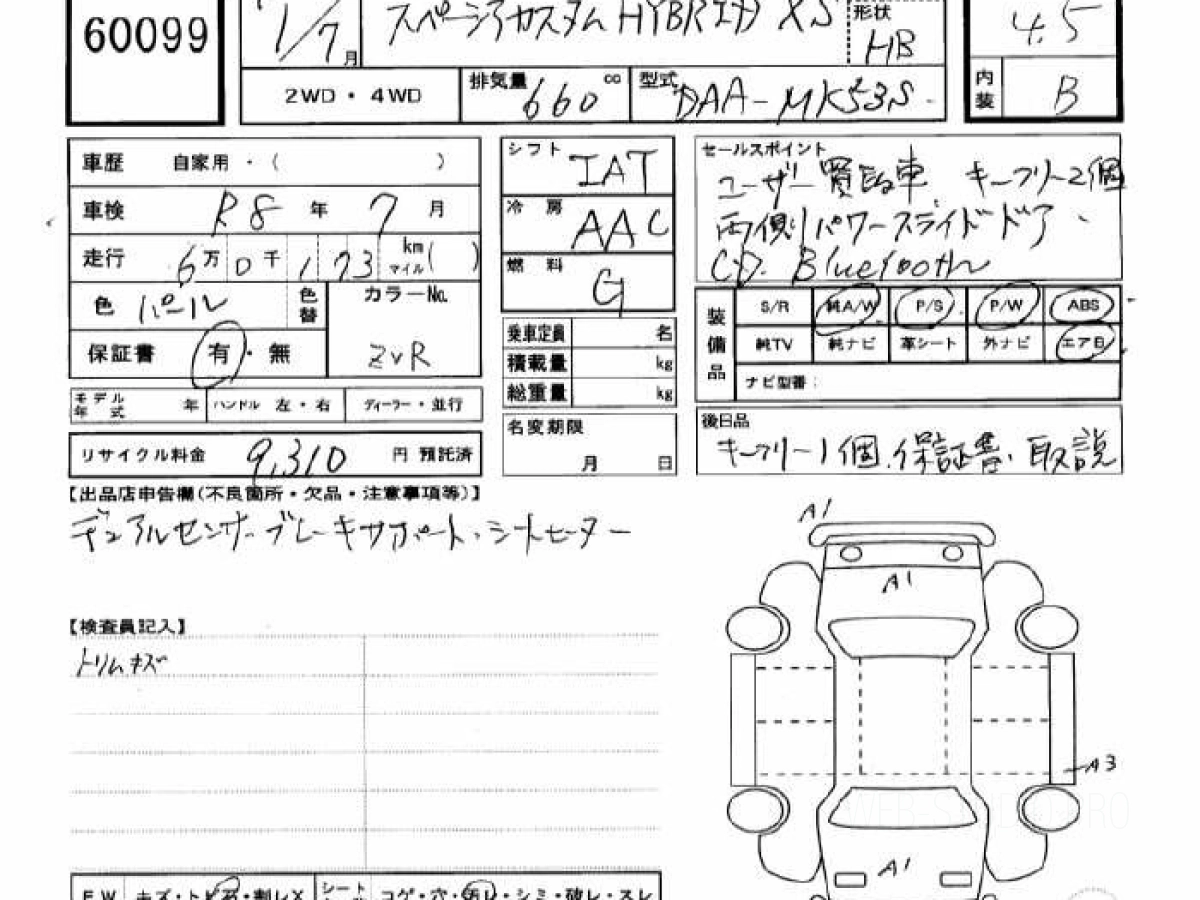 60099
1/7月
スペーシアカスタムHYBRID XS
形状
HB
4.5
2WD・4WD
排気量 660 cc
型式 DAA-MK53S
内装 B
車歴 自家用・( )
車検 R8年 7月
走行 6万0千173 km マイル( )
色 パール 色替
カラーNo.
ZVR
保証書 有・無
シフト IAT
冷房 AAC
燃料 G
乗車定員 名
積載量 kg
総重量 kg
名変期限
月 日
セールスポイント
ユーザー買取車 キーフリー2個
両側パワースライドドア、
CD. Bluetooth
装備品
S/R 純A/W P/S P/W ABS
純TV 純ナビ 革シート 外ナビ エアB
ナビ型番:
モデル年式 年 ハンドル 左・右 ディーラー・並行
リサイクル料金 9,310 円 預託済
後日品
キーフリー1個.保証書.取説
【出品店申告欄(不良箇所・欠品・注意事項等)】
デュアルセンサーブレーキサポート、シートヒーター
【検査員記入】
トリムキズ
A1
A1
A3
A1
WEB-S
F.W キズ・トビ石・割レX シート コゲ・穴・汚レ・シミ・破レ・スレ